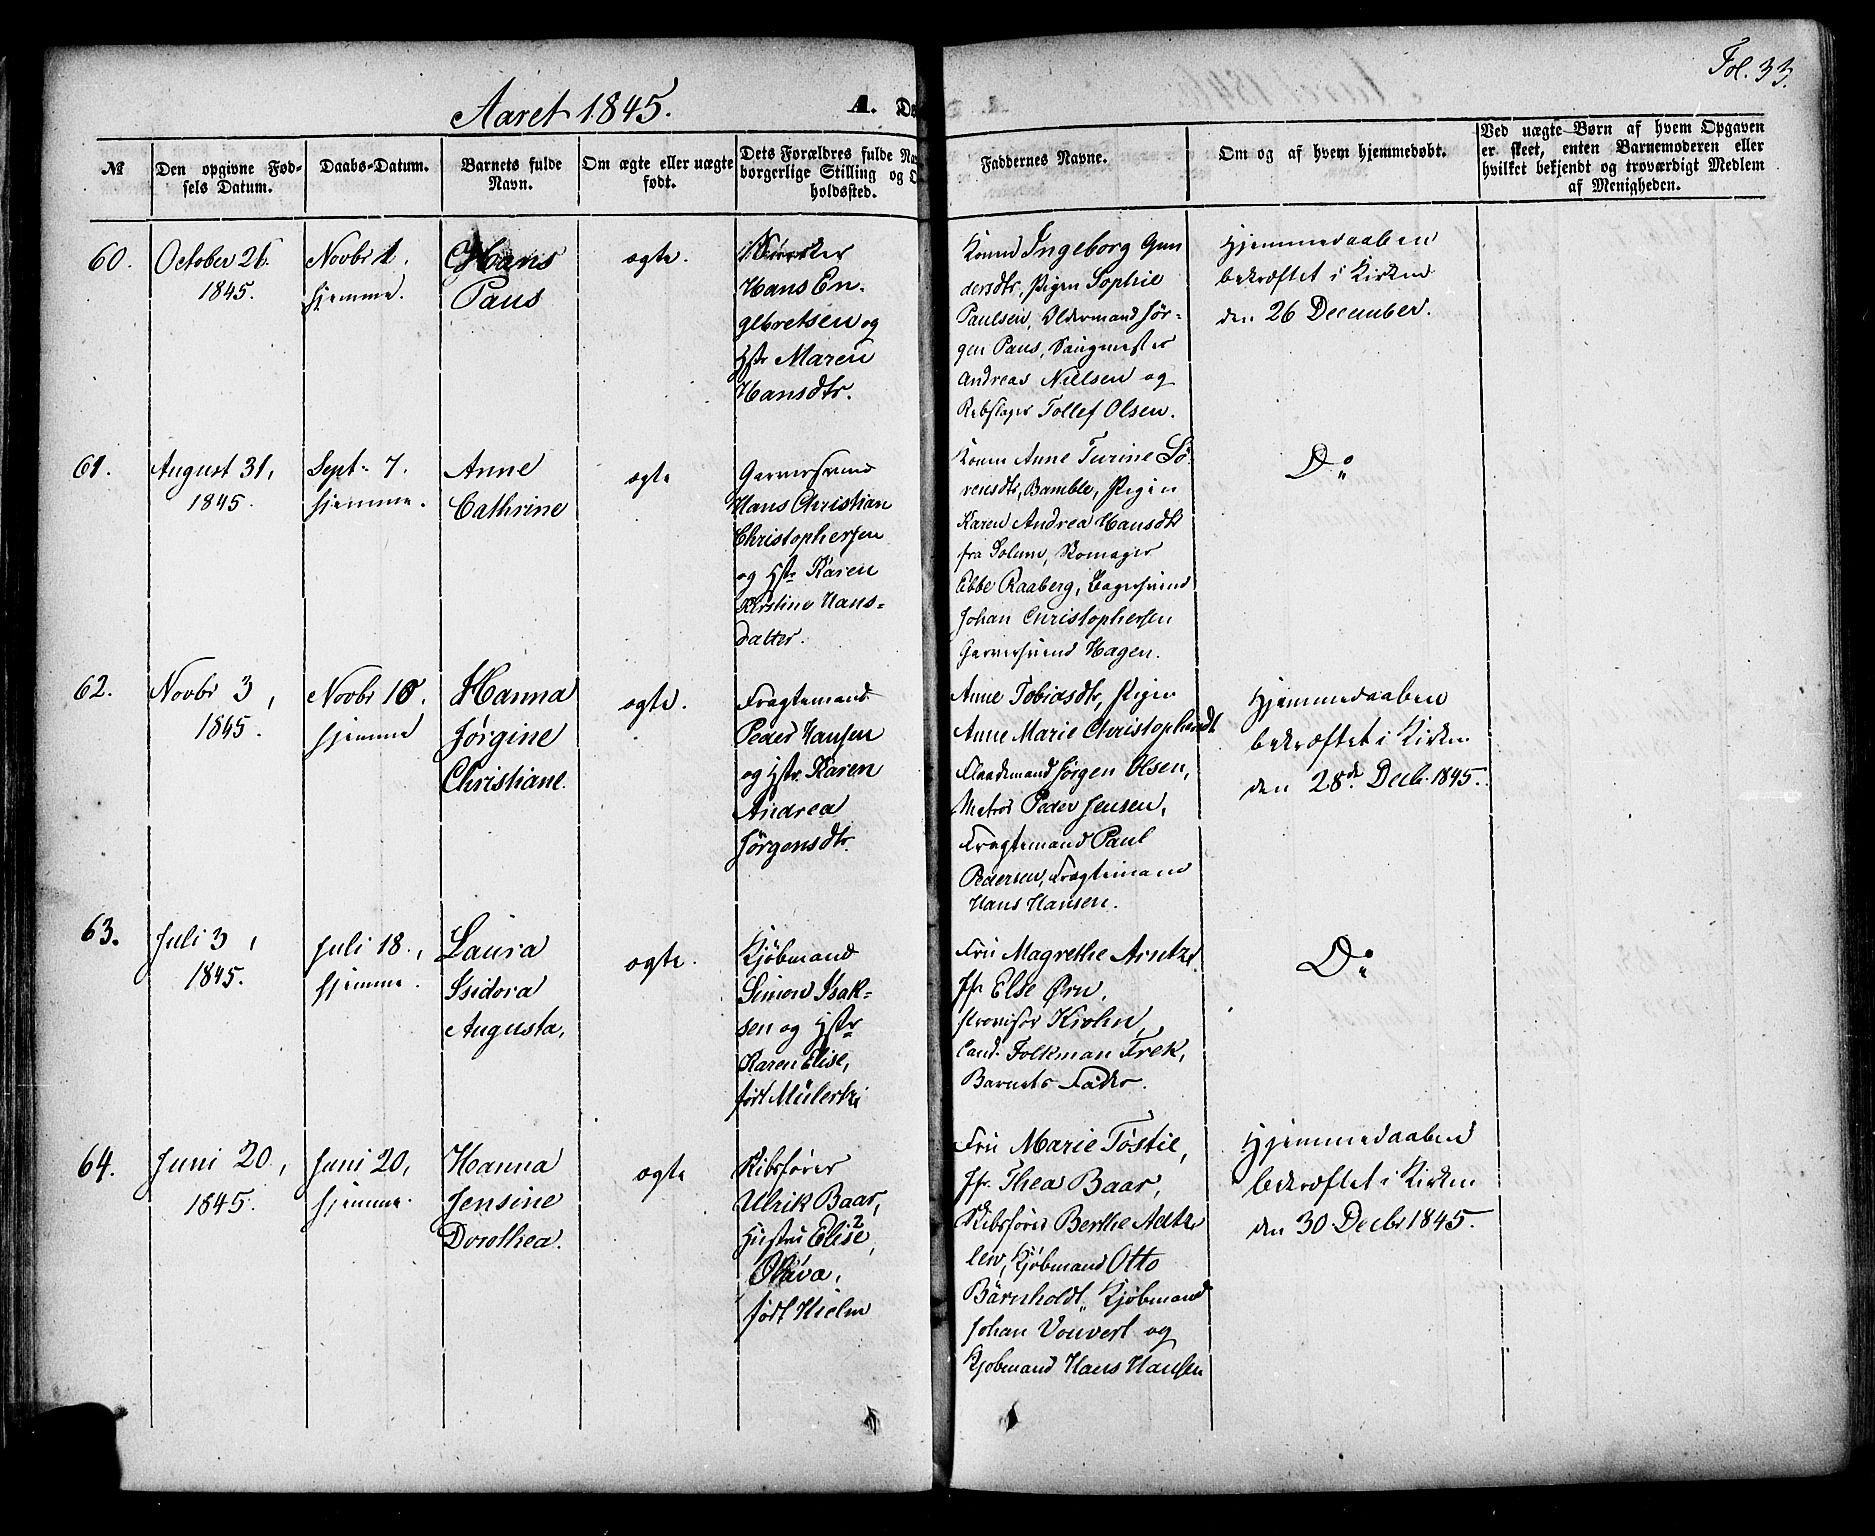 Fol. 33.
Aaret 1845.
A. Dø
№
Den opgivne Fød-
sels Datum.
Daabs-Datum.
Barnets fulde
Navn.
Om ægte eller uægte
født.
Dets Forældres fulde Na
borgerlige Stilling og O
holdssted.
Faddernes Navne.
Om og af hvem hjemmedøbt.
Ved uægte Børn af hvem Opgaven
er skeet, enten Barnemoderen eller
hvilket bekjendt og troværdigt Medlem
af Menigheden.
60.
October 26.
1845.
Novbr 1.
hjemme.
Hans
Paus
ægte.
Hans En-
gebretsen og
Hstr Maren
Hansdtr.
Konen Ingeborg Gun
dersdtr, Pigen Sophie
Paulsen, Oldermand Jør-
gen Paus, Saugmester
Andreas Nielsen og
Rebslager Tollef Olsen.
Hjemmedaaben
bekræftet i Kirken
den 26 December.
61.
August 31,
1845.
Septr 7.
hjemme.
Anne
Cathrine
ægte
Garversvend
Hans Christian
Christophersen
og Hstr Karen
Kirstine Hans-
datter.
Konen Anne Turine Sö-
rensdtr, Bamble, Pigen
Karen Andrea Hansdtr
fra Solum, Skomager
Ebbe Raaberg, Bagersvend
Johan Christophersen
Garversvend Hagen.
Do
62.
Novbr 3,
1845.
Novbr 10.
hjemme
Hanna
Jørgine
Christiane.
ægte.
Fragtemand
Peder Hansen
og Hstr. Karen
Andrea
Jørgensdtr.
Anne Tobiasdtr, Pigen
Anne Marie Christophersdt
Flaademand Jørgen Olsen,
Matros Peder Jensen,
Fragtemand Paul
Pedersen, Fragtemand
Hans Hansen.
Hjemmedaaben
bekræftet i Kirken
den 28de Decbr. 1845.
63.
Juli 3,
1845.
Juli 18.,
hjemme.
Laura
Isidora
Augusta,
ægte.
Kjöbmand
Simon Isak-
sen og Hstr
Karen Elise,
født
Fru Magrethe Arntz
Jfr Else Ørn,
Provisor Krohn,
Cand. Folkman Frek,
Barnets Fader.
Do
64.
Juni 20,
1845.
Juni 20,
hjemme.
Hanna
Jensine
Dorothea.
ægte
Skibsfører
Ulrik Baar,
Hustru Elise,
Olava,
født Hielm
Fru Marie Töstie,
Jfr. Thea Baar,
Skibsfører Berthe
lew, Kjöbmand Otto
Bärnholdt, Kjöbmand
Johan Vouvert og
Kjöbmand Hans Hansen
Hjemmedaaben
bekræftet i Kirken
den 30 Decbr 1845.